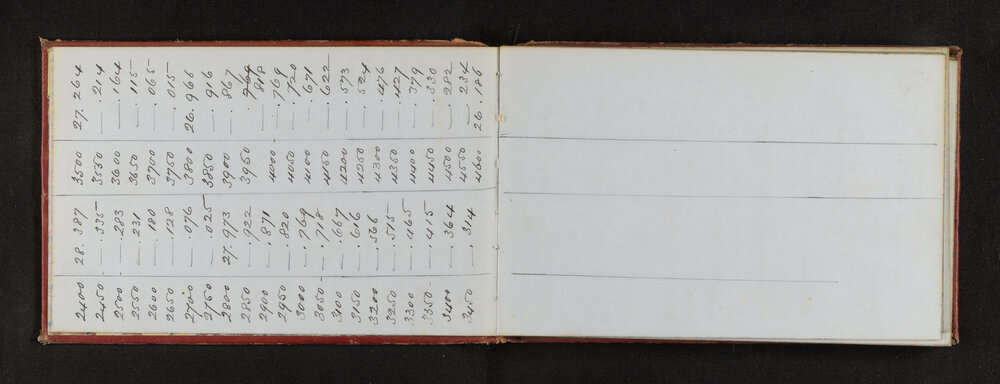 2400 28.387 3500 27.264
2450 — .335 3550 — .214
2500 — .283 3600 — .164
2550 — .231 3650 — .115
2600 — .180 3700 — .065
2650 — .128 3750 — .015
2700 — .076 3800 26.966
2750 — .025 3850 — .916
2800 27.973 3900 — .867
2850 — .922 3950 — .764 818
2900 — .871 4000 — .769
2950 — .820 4050 — .720
3000 — .769 4100 — .671
3050 — .718 4150 — .622
3100 — .667 4200 — .573
3150 — .616 4250 — .524
3200 — .566 4300 — .476
3250 — .515 4350 — .427
3300 — .465 4400 — .379
3350 — .415 4450 — .330
3400 — .364 4500 — .282
3450 — .314 4550 — .234
4600 26.186